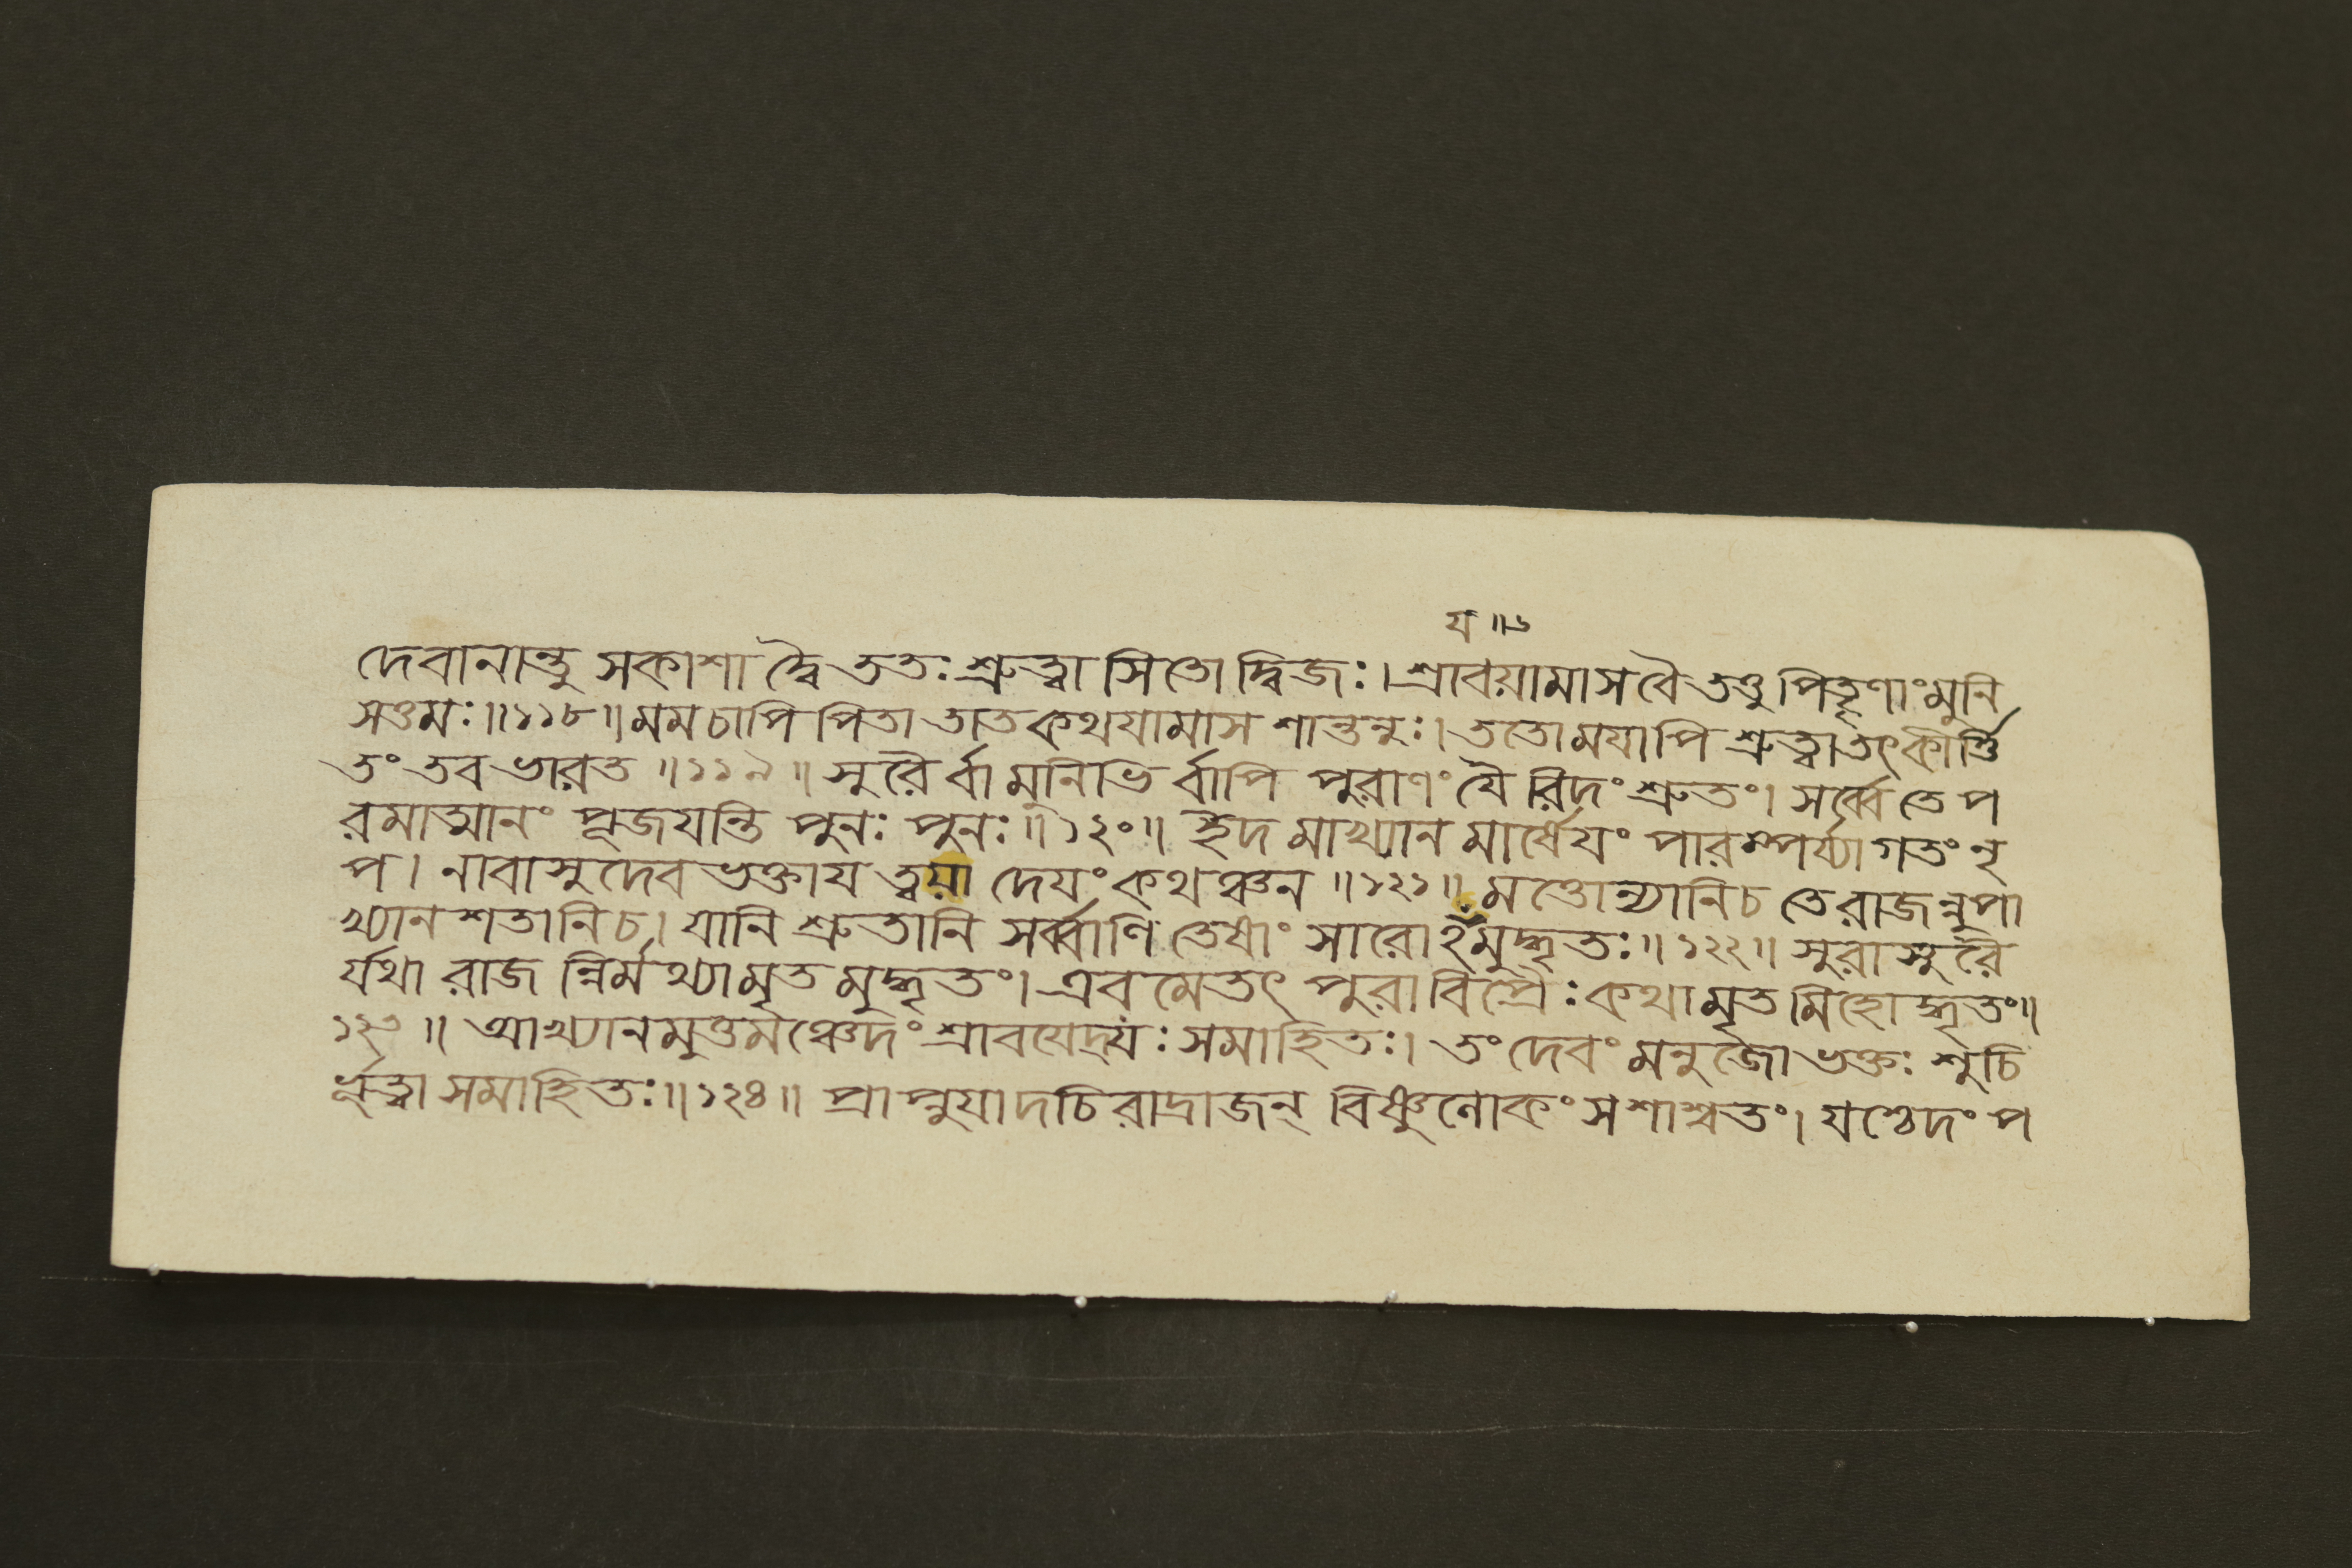 য ॥১
দেবানান্তু সকাশা দ্বৈ ততঃ শ্রুত্বা সিতো দ্বিজঃ। শ্রাবয়ামাস বৈ তণ্ডু পিতৄণাং মুনি
সত্তমঃ॥১১৮॥ মম চাপি পিতা তাত কথযামাস শান্তনুঃ। ততো মযাপি শ্রুত্বা তৎ কীর্ত্তি
তং তব ভারত ॥১১৯॥ সুরৈ র্বা মুনিভি র্বাপি পুরাণং যৈ রিদং শ্রুতং। সর্ব্বে তে প
রমাত্মানং পূজযন্তি পুনঃ পুনঃ॥১২০॥ ইদ মাখ্যান মার্ষেযং পারম্পর্য্যাগতং নৃ
প। নাবাসুদেব ভক্তায ত্বয়া দেযং কথঞ্চন ॥১২১॥ মত্তোন্যানি চ তে রাজন্নুপা
খ্যান শতানি চ। যানি শ্রুতানি সর্ব্বাণি তেষাং সারোঽঁমুদ্ধৃতঃ॥১২২॥ সুরাসুরৈ
র্যথা রাজ ন্নির্মথ্যামৃত মুদ্ধৃতং। এব মেতৎ পুরা বিপ্রৈঃ কথামৃত মিহোদ্ধৃতং॥
১২৩॥ আখ্যানমুত্তমঞ্চেদং শ্রাবযেদ্‌যঃ সমাহিতঃ। তং দেবং মনুজো ভক্তঃ শুচি
র্ভূত্বা সমাহিতঃ॥১২৪॥ প্রাপ্নুযাদচিরাদ্রাজন্ বিষ্ণুলোকং সশাশ্বতং। যশ্চেদং প